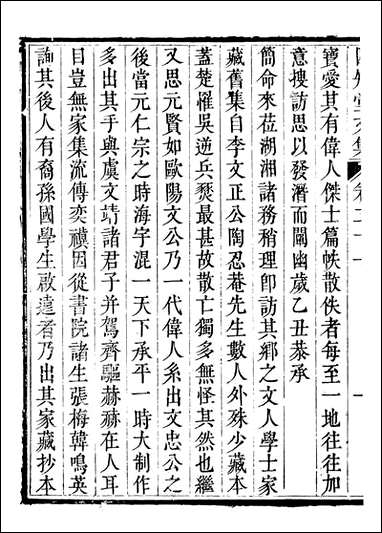 寶愛其有偉人傑士篇帙散佚者每至一地往往加
意搜訪思以發潛而闡幽歲乙丑恭承
簡命來莅湖湘諸務稍理卽訪其鄉之文人學士家
藏舊集自李文正公陶忍菴先生數人外殊少藏本
蓋楚罹吳逆兵燹最甚故散亡獨多無怪其然也繼
又思元賢如歐陽文公乃一代偉人系出文忠公之
後當元仁宗之時海宇混一天下承平一時大制作
多出其手與虞文靖諸君子并駕齊驅赫赫在人耳
目豈無家集流傳奕禩因從書院諸生張梅韓鳴英
論其後人有裔孫國學生啟達者乃出其家藏抄本